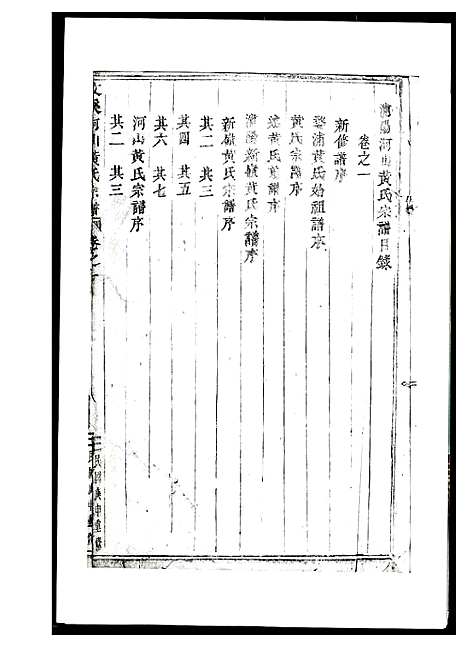 浦陽河山黃氏宗譜目錄
卷之一
新修譜序
黃氏始祖譜序
黃氏宗譜序
黃氏宗譜序
浦陽新嶺黃氏宗譜序
新嶺黃氏宗譜序
其二 其三
其四 其五
其六 其七
河山黃氏宗譜序
其二 其三
河山黃氏宗譜 卷之一
民國庚申重修